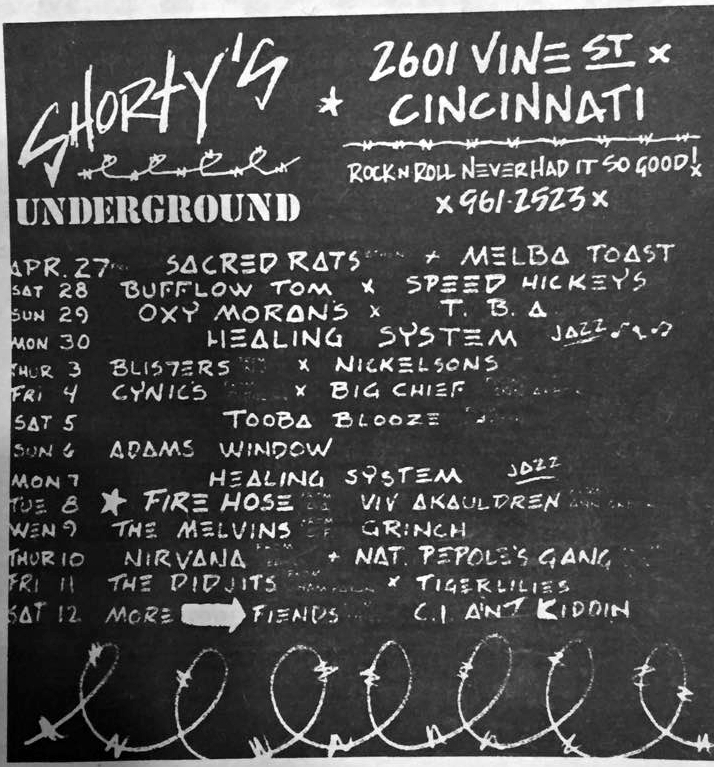 SHORTY'S
UNDERGROUND
★ 2601 VINE ST x
CINCINNATI
ROCK N ROLL NEVER HAD IT SO GOOD!
x 961-2523 x
APR. 27 SACRED RATS + MELBA TOAST
SAT 28 BUFFLOW TOM x SPEED HICKEYS
SUN 29 OXY MORANS x T. B. A
MON 30 HEALING SYSTEM JAZZ
THUR 3 BLISTERS x NICKELSONS
FRI 4 CYNICS x BIG CHIEF
SAT 5 TOOBA BLOOZE
SUN 6 ADAMS WINDOW
MON 7 HEALING SYSTEM JAZZ
TUE 8 ★ FIRE HOSE VIV AKAULDREN
WEN 9 THE MELVINS GRINCH
THUR 10 NIRVANA + NAT. PEPOLE'S GANG
FRI 11 THE DIDJITS x TIGERLILIES
SAT 12 MORE FIENDS C.I. AIN'T KIDDIN